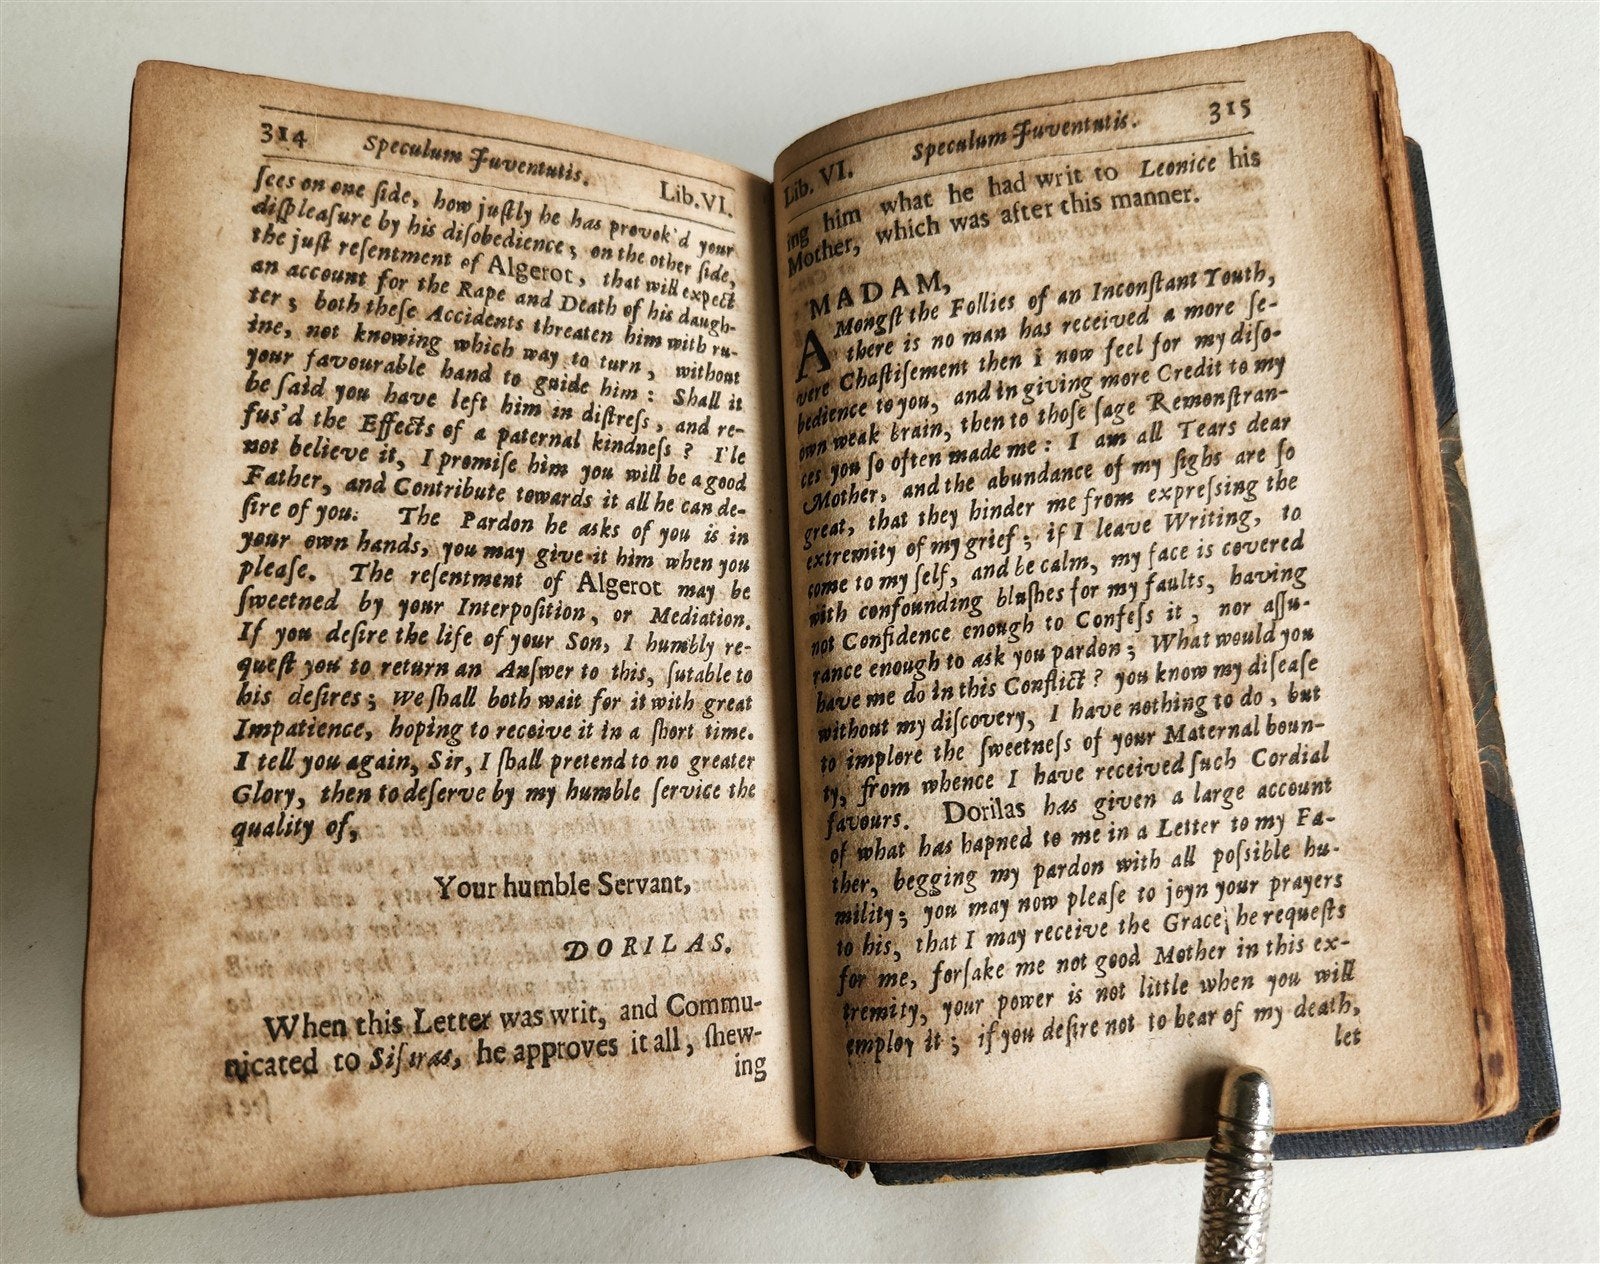 314 Speculum Juventutis. Lib.VI.
ſees on one ſide, how juſtly he has provok'd your
diſpleaſure by his diſobedience; on the other ſide,
the juſt reſentment of Algerot, that will expect
an account for the Rape and Death of his daugh-
ter; both theſe Accidents threaten him with ru-
ine, not knowing which way to turn, without
your favourable hand to guide him: Shall it
be ſaid you have left him in diſtreſs, and re-
fus'd the Effects of a paternal kindneſs? I'le
not believe it, I promiſe him you will be a good
Father, and Contribute towards it all he can de-
ſire of you. The Pardon he asks of you is in
your own hands, you may give it him when you
pleaſe. The reſentment of Algerot may be
ſweetned by your Interpoſition, or Mediation.
If you deſire the life of your Son, I humbly re-
queſt you to return an Anſwer to this, ſutable to
his deſires; we ſhall both wait for it with great
Impatience, hoping to receive it in a ſhort time.
I tell you again, Sir, I ſhall pretend to no greater
Glory, then to deſerve by my humble ſervice the
quality of,
Your humble Servant,
DORILAS.
When this Letter was writ, and Commu-
nicated to Siſiras, he approves it all, ſhew-
ing
Lib. VI. Speculum Juventutis. 315
ing him what he had writ to Leonice his
Mother, which was after this manner.
MADAM,
AMongſt the Follies of an Inconſtant Youth,
there is no man has received a more ſe-
vere Chaſtiſement then i now feel for my diſo-
bedience to you, and in giving more Credit to my
own weak brain, then to thoſe ſage Remonſtran-
ces you ſo often made me: I am all Tears dear
Mother, and the abundance of my ſighs are ſo
great, that they hinder me from expreſsing the
extremity of my grief; if I leave Writing, to
come to my ſelf, and be calm, my face is covered
with confounding bluſhes for my faults, having
not Confidence enough to Confeſs it, nor aſſu-
rance enough to ask you pardon; What would you
have me do in this Conflict? you know my diſeaſe
without my diſcovery, I have nothing to do, but
to implore the ſweetneſs of your Maternal boun-
ty, from whence I have received ſuch Cordial
favours. Dorilas has given a large account
of what has hapned to me in a Letter to my Fa-
ther, begging my pardon with all poſsible hu-
mility; you may now pleaſe to joyn your prayers
to his, that I may receive the Grace he requeſts
for me, forſake me not good Mother in this ex-
tremity, your power is not little when you will
employ it; if you deſire not to hear of my death,
let